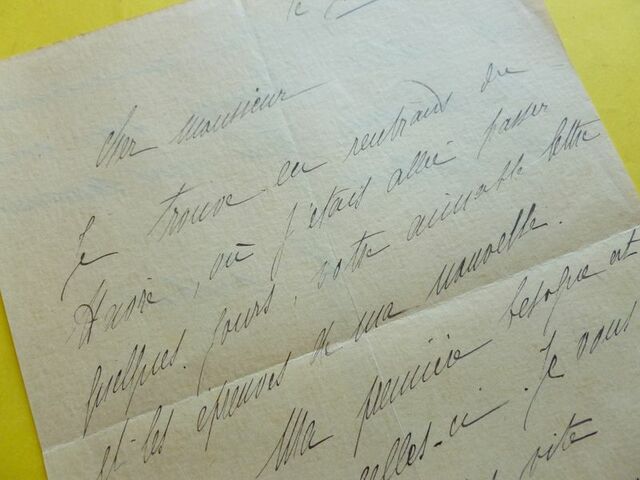 le
Cher Monsieur
Je trouve en rentrant du
Havre, où j'étais allé passer
quelques jours, votre aimable lettre
et les épreuves de ma nouvelle.
Ma première besogne est
celles-ci. Je vous
vite